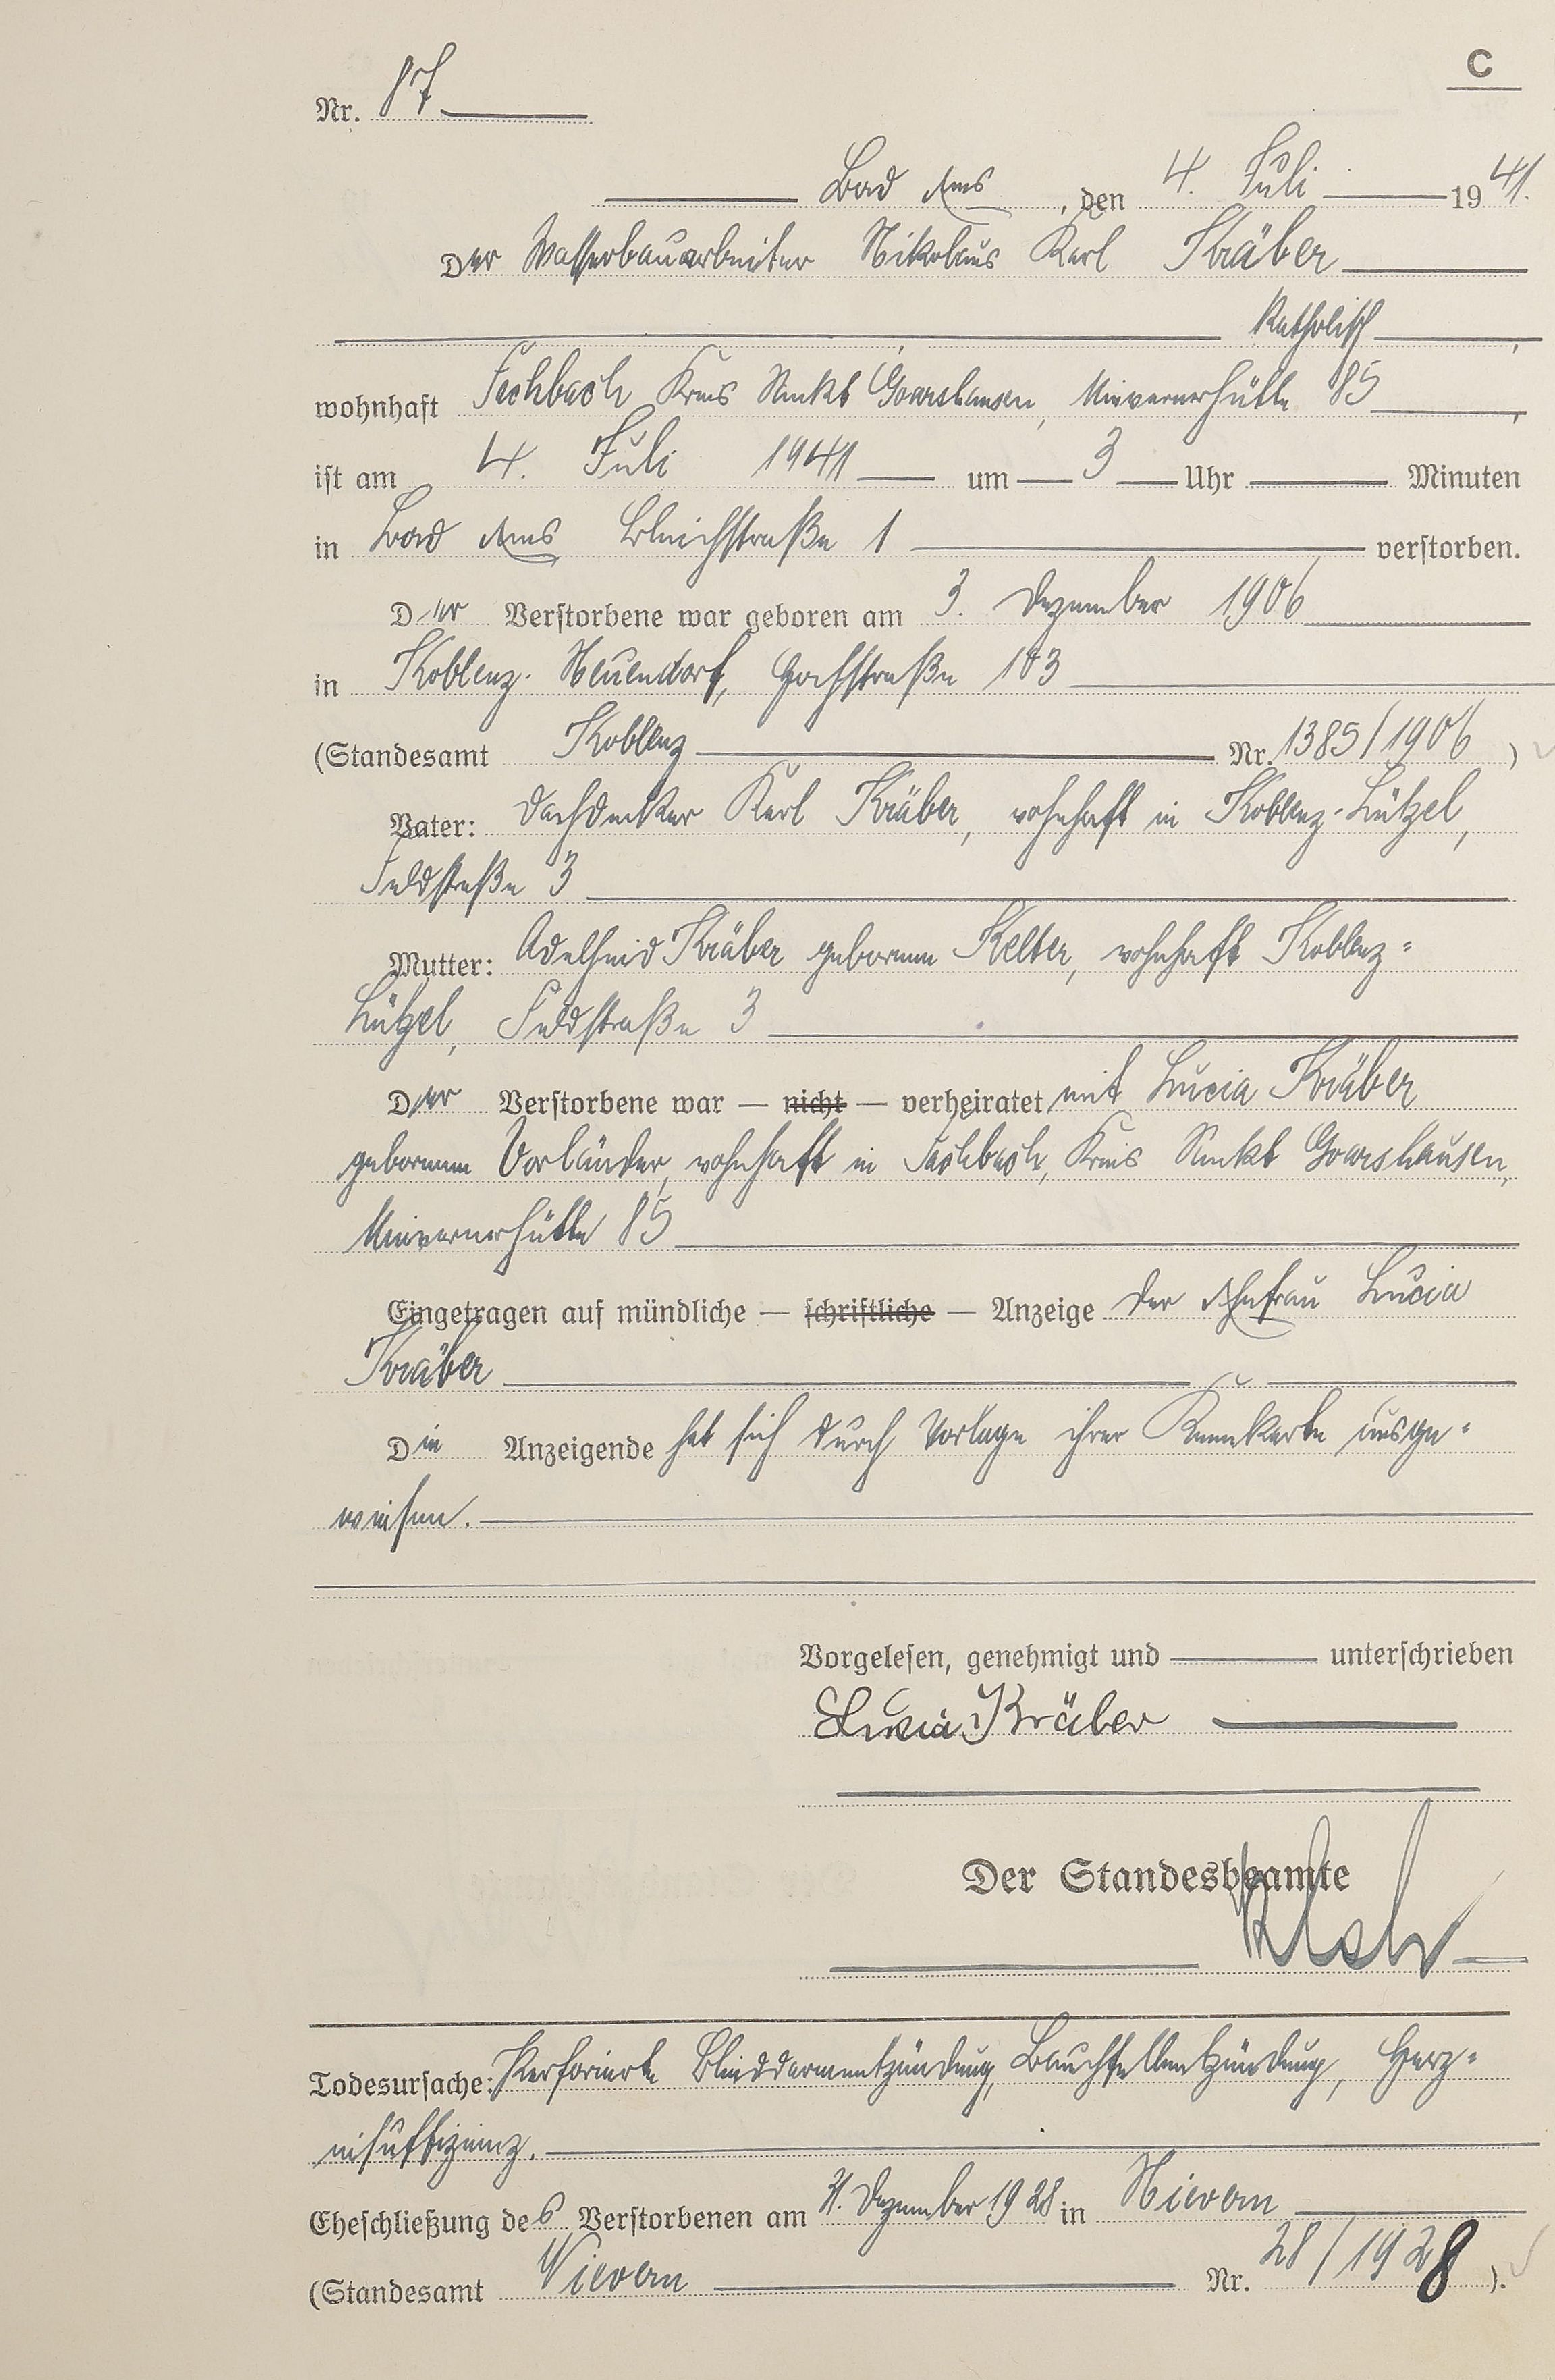 C
Nr. 87
Bad Ems, den 4. Juli 1941.
Der Wasserbauarbeiter Nikolaus Karl Kräber
Katholisch,
wohnhaft Fachbach Kreis Sankt Goarshausen, Nievernerhütte 85,
ist am 4. Juli 1941 um 3 Uhr Minuten
in Bad Ems Bleichstraße 1 verstorben.
Der Verstorbene war geboren am 3. Dezember 1906
in Koblenz-Neuendorf, Hochstraße 103
(Standesamt Koblenz Nr. 1385/1906)
Vater: Dachdecker Karl Kräber, wohnhaft in Koblenz-Lützel,
Feldstraße 3
Mutter: Adelheid Kräber geborene Kelter, wohnhaft Koblenz-
Lützel, Feldstraße 3
Der Verstorbene war — nicht — verheiratet mit Lucia Kräber
geborenen Vorländer, wohnhaft in Fachbach, Kreis Sankt Goarshausen,
Nievernerhütte 85
Eingetragen auf mündliche — schriftliche — Anzeige der Ehefrau Lucia
Kräber
Die Anzeigende hat sich durch Vorlage ihrer Kennkarte ausge-
wiesen.
Vorgelesen, genehmigt und unterschrieben
Lucia Kräber
Der Standesbeamte
Todesursache: Perforierte Blinddarmentzündung, Bauchfellentzündung, Herz-
insuffizienz.
Eheschließung des Verstorbenen am Dezember 1928 in Nievern
(Standesamt Nievern Nr. 28/1928).